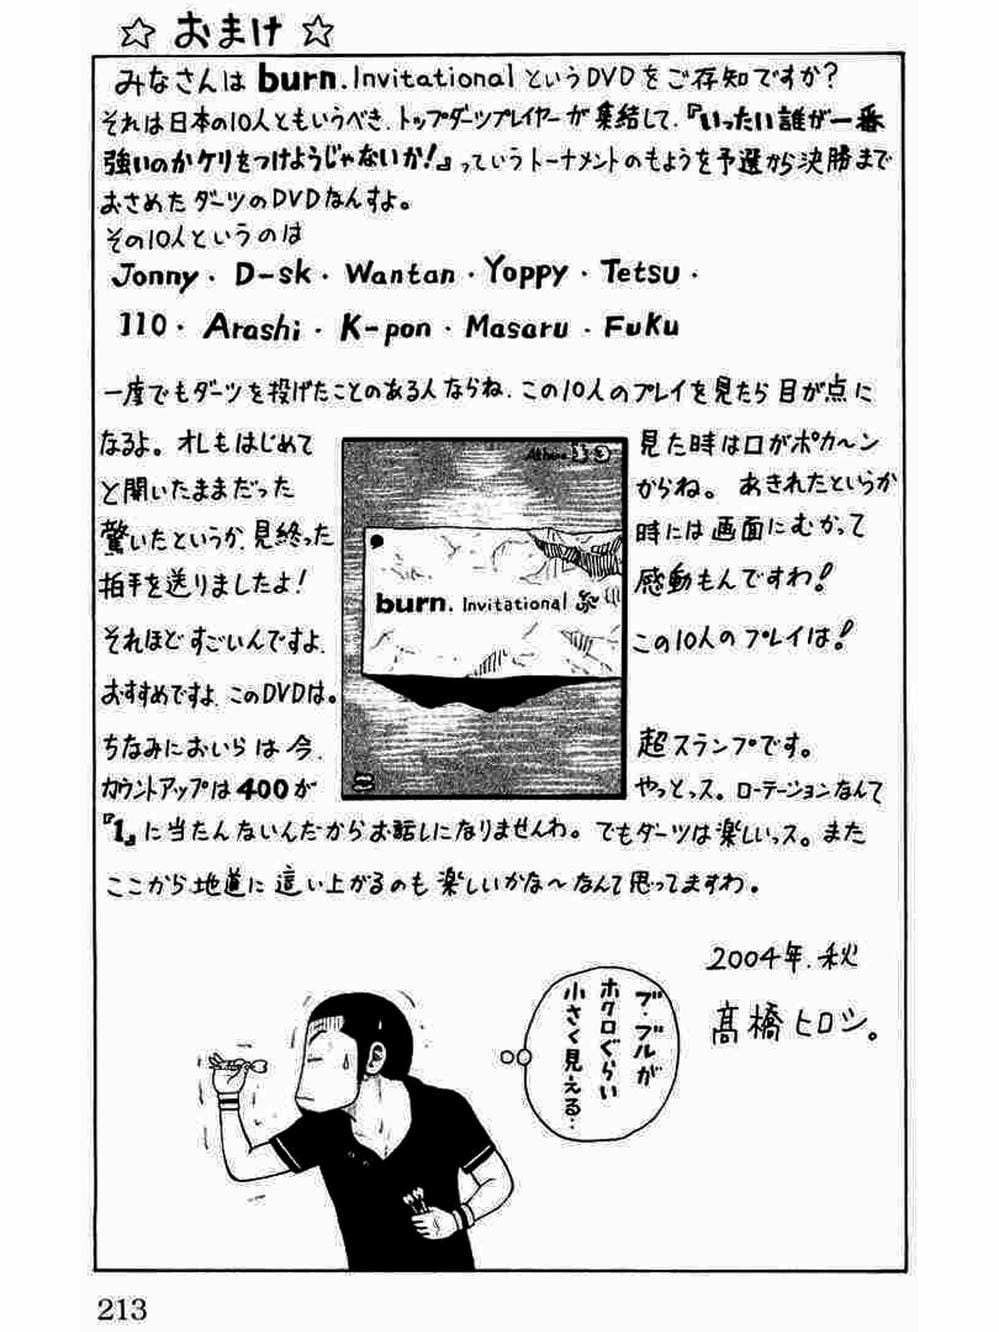 ☆ おまけ ☆
みなさんは burn. Invitational というDVDをご存知ですか?
それは日本の10人ともいうべき、トップダーツプレイヤーが集結して、『いったい誰が一番
強いのかケリをつけようじゃないか!』っていうトーナメントのもようを予選から決勝まで
おさめたダーツのDVDなんすよ。
その10人というのは
Jonny・D-sk・Wantan・Yoppy・Tetsu・
110・Arashi・K-pon・Masaru・Fuku
一度でもダーツを投げたことのある人ならね、この10人のプレイを見たら目が点に
なるよ。オレもはじめて見た時は口がポカ〜ン
と開いたままだったからね。あきれたというか
驚いたというか、見終った時には画面にむかって
拍手を送りましたよ!感動もんですわ!
それほどすごいんですよ、この10人のプレイは!
おすすめですよ、このDVDは。
ちなみにおいらは今、超スランプです。
カウントアップは400がやっとっス。ローテーションなんて
『1』に当たんないんだからお話しになりませんわ。でもダーツは楽しいっス。また
ここから地道に這い上がるのも楽しいかな〜なんて思ってますわ。
burn. Invitational
2004年、秋
髙橋ヒロシ。
ブ・ブルが
ホクロぐらい
小さく見える…
213